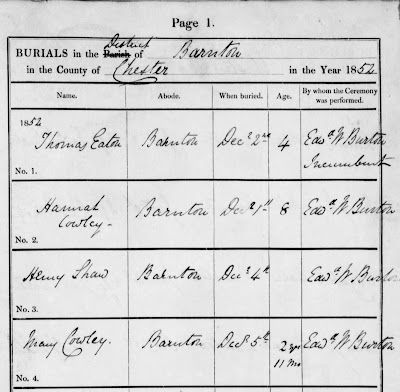 Page 1.
BURIALS in the District Parish of Barnton
in the County of Chester in the Year 1852
Name. Abode. When buried. Age. By whom the Ceremony was performed.
1852
Thomas Eaton Barnton Decr 2nd 4 Edwd W Burton
Incumbent
No. 1.
Hannah
Cowley Barnton Decr 1st 8 Edwd W Burton
No. 2.
Henry Shaw Barnton Decr 4th Edwd W Burton
No. 3.
Mary Cowley. Barnton Decr 5th 2 yrs
11 Mo Edwd W Burton
No. 4.